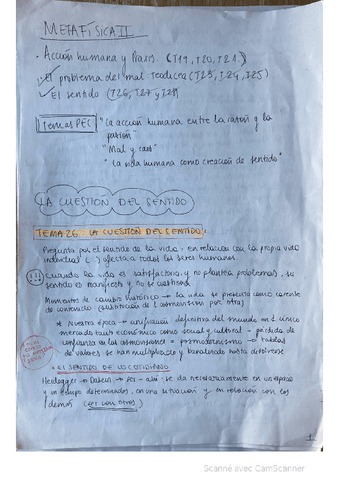 METAFÍSICA II
- Acción humana y Praxis. (T19, T20, T21.)
- El problema del mal. Teodicea (T23, T24, T25)
- El sentido (T26, T27 y T28)
Temas PEC "La acción humana entre la razón y la
pasión"
"Mal y caos"
"La vida humana como creación de sentido"
LA CUESTIÓN DEL SENTIDO
TEMA 26. LA CUESTIÓN DEL SENTIDO:
Pregunta por el sentido de la vida: en relación con la propia vida
individual (:) afecta a todos los seres humanos.
Cuando la vida es satisfactoria y no plantea problemas, su
sentido es manifiesto y no se cuestiona
Momentos de cambio histórico → la vida se presenta como carente
de contenido (sustitución de 1 cosmovisión por otra)
* Nuestra época → unificación definitiva del mundo en 1 único
mercado tanto económico como social y cultural - pérdida de
confianza en las cosmovisiones = postmodernismo → tablas
de valores se han multiplicado y banalizado hasta disolverse
* EL SENTIDO DE LO COTIDIANO
Heidegger → Dasein → ser-ahí: se da necesariamente en un espacio
y un tiempo determinados, en una situación y en relación con los
demás (ser con otros)
1
Scanné avec CamScanner